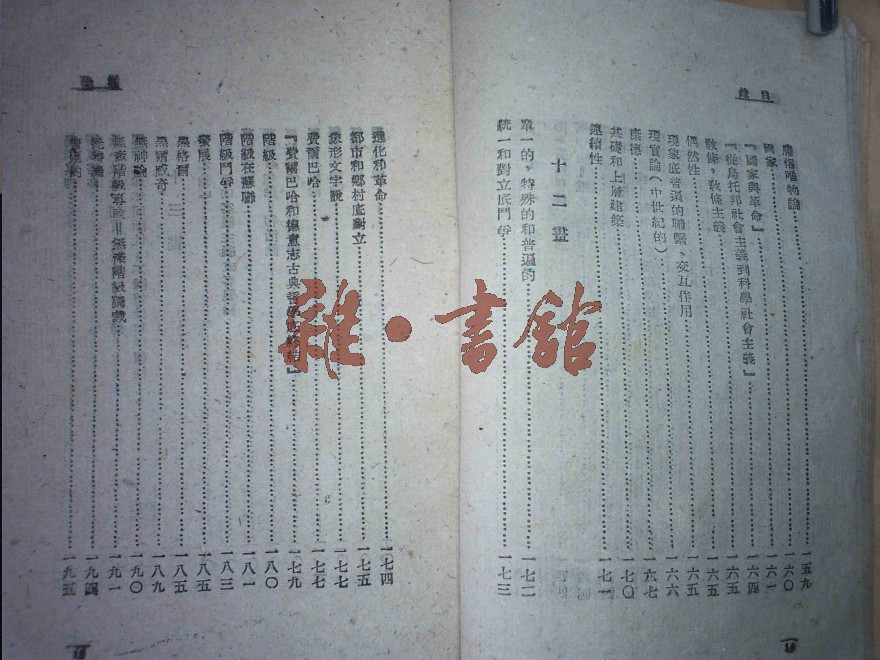 目錄
庸俗唯物論……一五九
國家……一六〇
『國家與革命』……一六一
『從烏托邦社會主義到科學社會主義』……一六四
教條，教條主義……一六五
偶然性……一六五
現象底普遍的聯繫、交互作用……一六五
現實論（中世紀的）……一六六
康德……一六七
基礎和上層建築……一七〇
連續性……一七一
十二畫
單一的，特殊的和普遍的……一七二
統一和對立底鬥爭……一七三
進化和革命……一七四
都市和鄉村底對立……一七五
象形文字說……一七七
費爾巴哈……一七七
『費爾巴哈和德意志古典哲學底終結』……一七九
階級……一八〇
階級在蘇聯……一八一
階級鬥爭……一八三
發展……一八五
黑格爾……一八五
……一八九
無神論……一九〇
無產階級專政＝無產階級獨裁……一九一
……一九四
……一九五
雜·書館